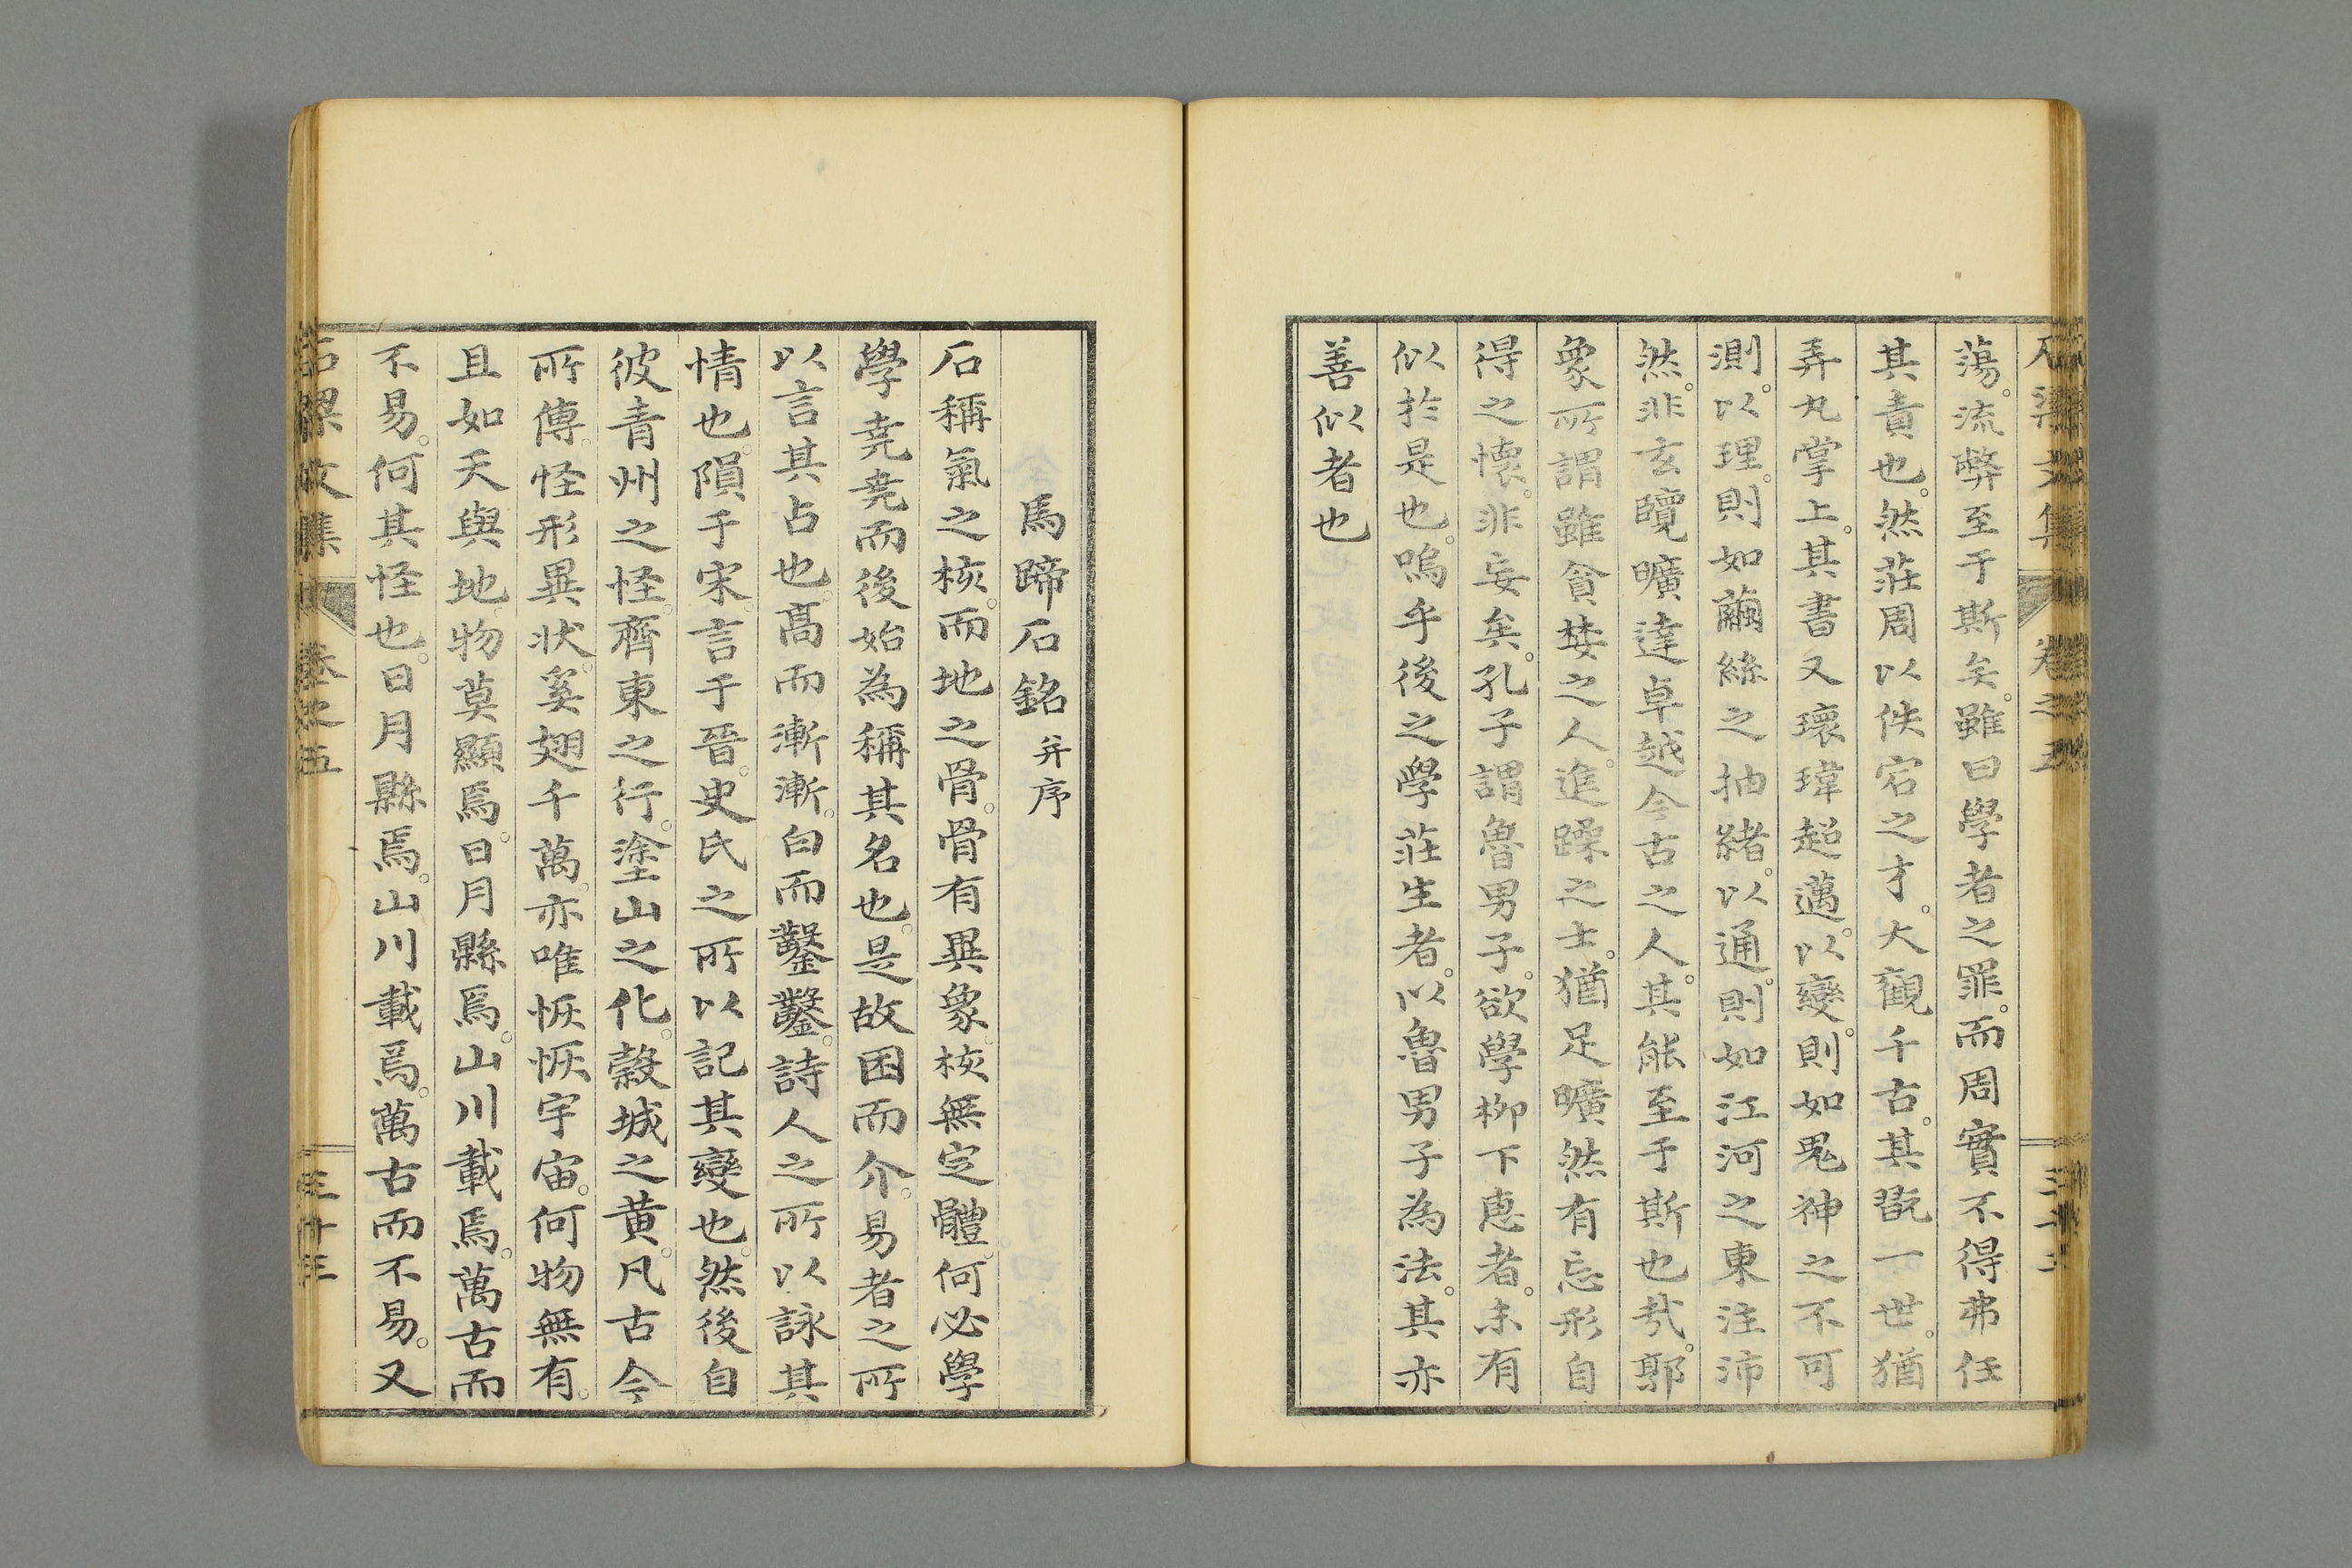 蕩。流弊至于斯矣。雖曰學者之罪。而周實不得弗任
其責也。然莊周以佚宕之才。大觀千古。其翫一世。猶
弄丸掌上。其書又瓌瑋超邁。以變。則如鬼神之不可
測。以理。則如繭絲之抽緒。以通。則如江河之東注沛
然。非玄覽曠達卓越今古之人。其能至于斯也哉。郭
象所謂雖貪婪之人。進躁之士。猶足曠然有忘形自
得之懷。非妄矣。孔子謂魯男子。欲學柳下惠者。未有
似於是也。嗚乎後之學莊生者。以魯男子為法。其亦
善似者也
馬蹄石銘 并序
石稱氣之核。而地之骨。骨有異象。核無定體。何必學
學堯堯而後始為稱其名也。是故困而介。易者之所
以言其占也。高而漸漸。白而鑿鑿。詩人之所以詠其
情也。隕于宋。言于晉。史氏之所以記其變也。然後自
彼青州之怪。齊東之行。塗山之化。穀城之黄。凡古今
所傳。怪形異状。奚翅千萬。亦唯恢恢宇宙。何物無有。
且如天與地。物莫顯焉。日月縣焉。山川載焉。萬古而
不易。何其怪也。日月縣焉。山川載焉。萬古而不易。又
石梁文集 卷之五 三十三